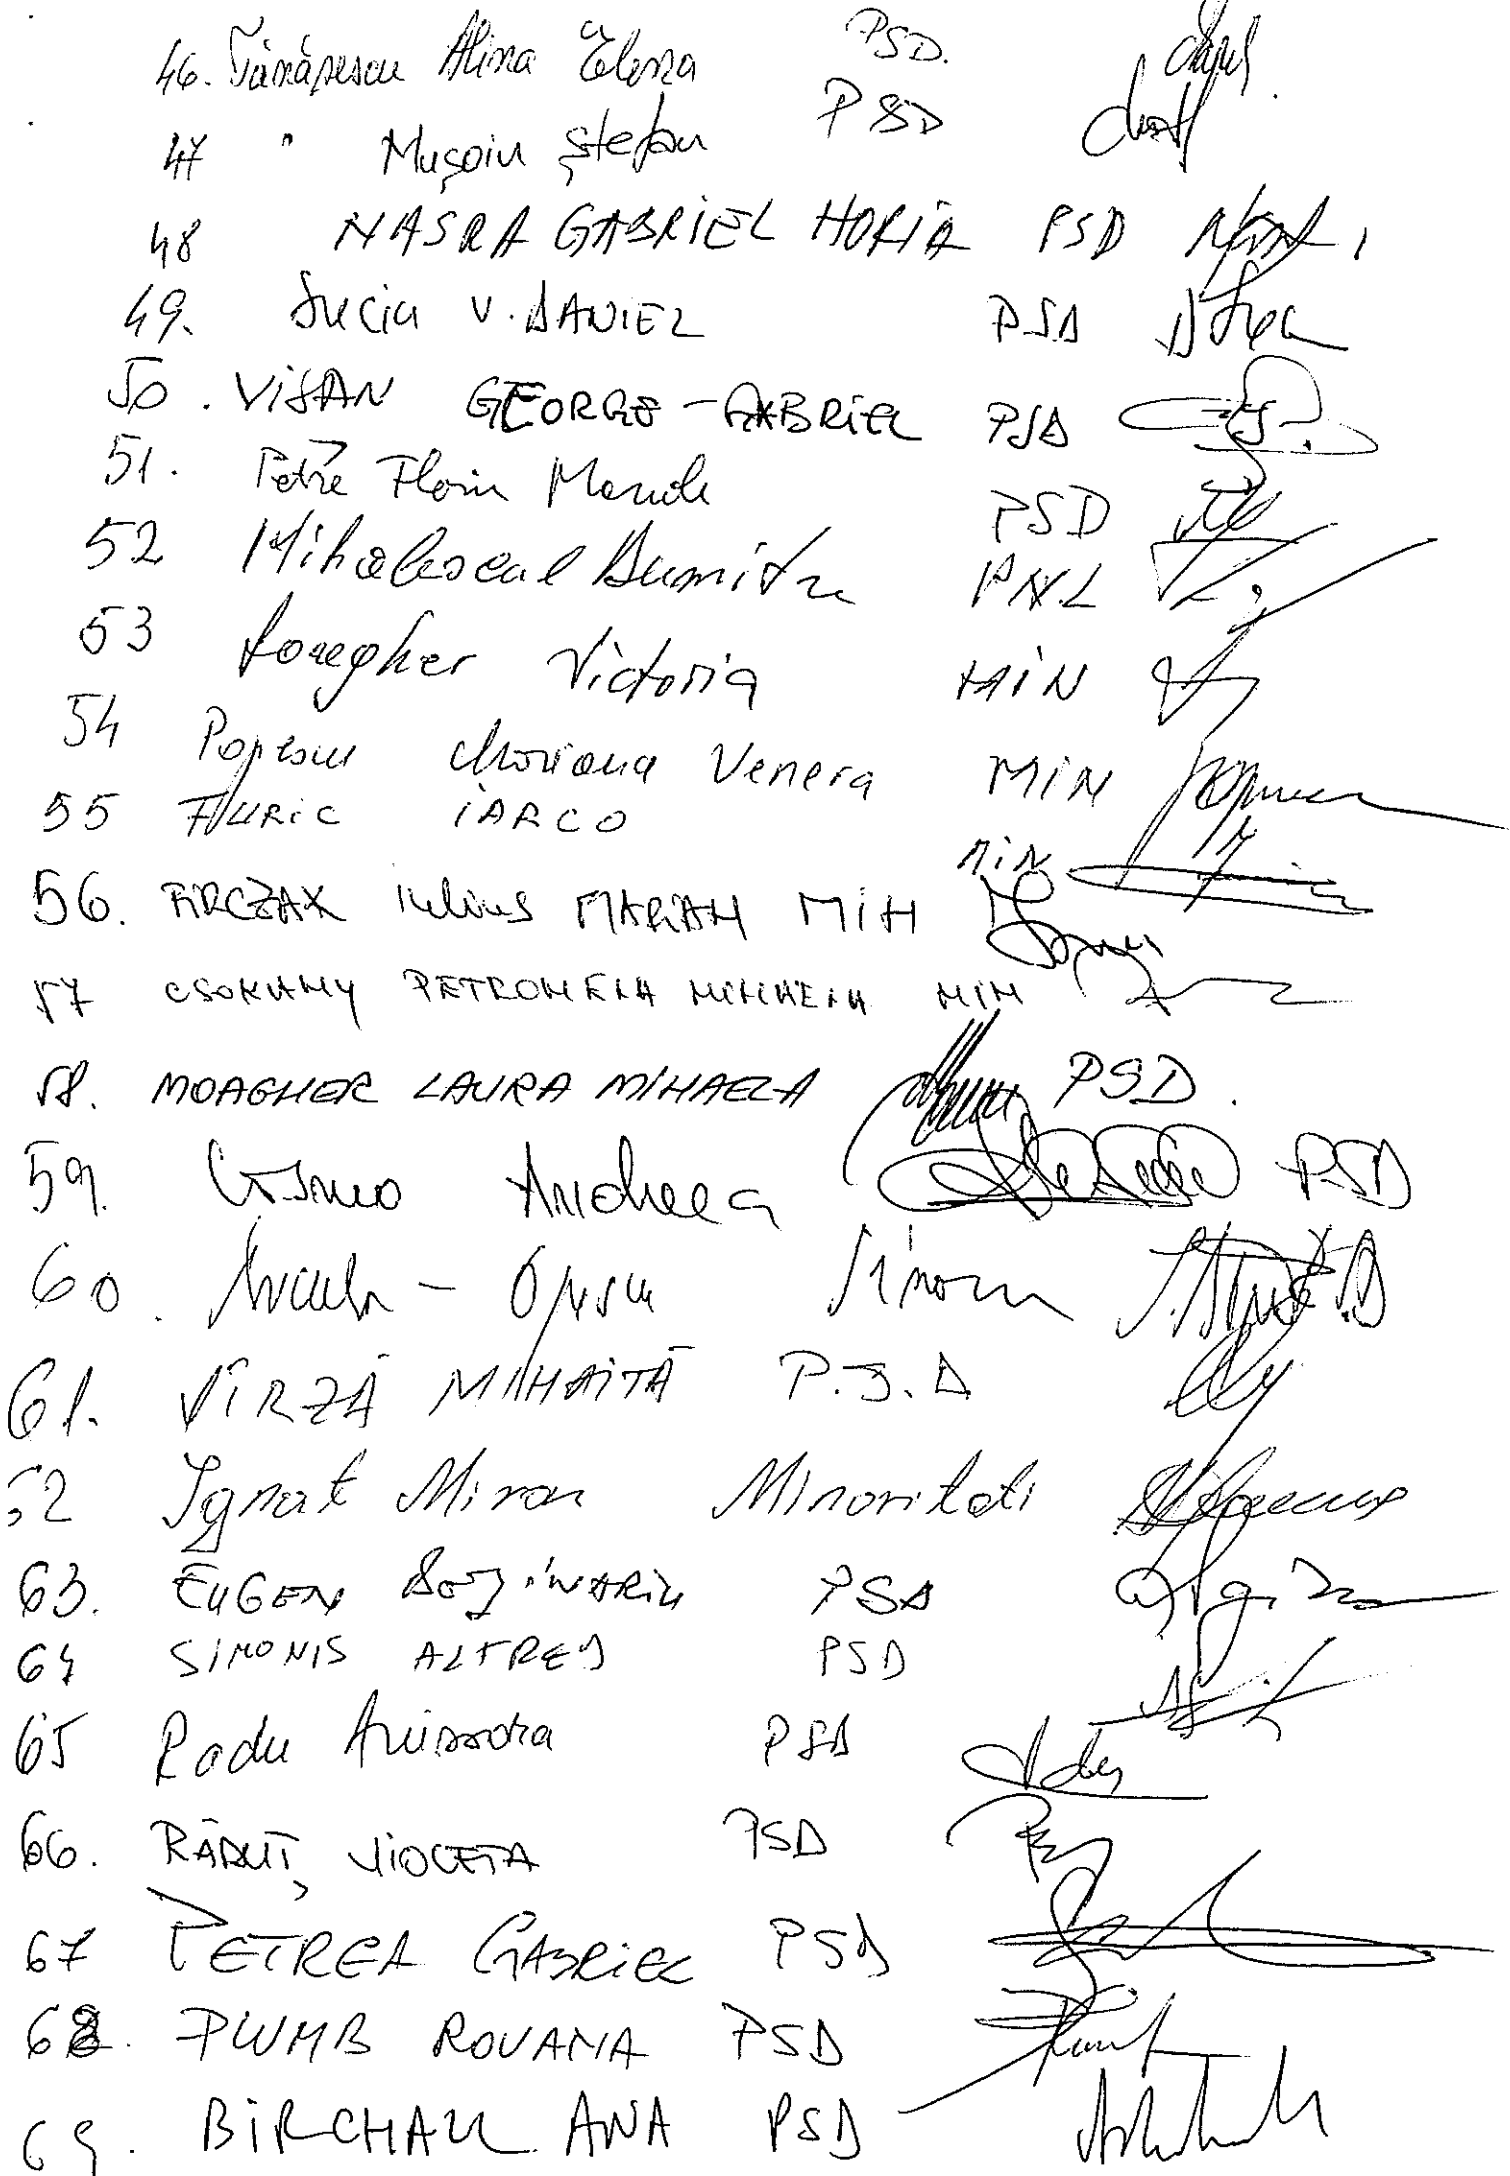 46. Tănăsescu Alina Elena PSD.
47 " Mușoiu Ștefan PSD
48 NASRA GABRIEL HORIA PSD
49. Suciu V. DANIEL PSD
50. VIȘAN GEORGE-GABRIEL PSD
51. Petre Florin Manole PSD
52 Mihalescul Dumitru PNL
53 Longher Victoria MIN
54 Popescu Mariana Venera MIN
55 FIURIC IARCO MIN
56. FIRCZAK Iulius MARIAN MIN
57 CSOKANY PETRONELA MIHAELA MIN
58. MOAGHER LAURA MIHAELA PSD.
59. Cosma Andreea PSD
60. Opescu
61. VÎRZĂ MIHĂIȚĂ P.S.D
62 Ignat Miron Minoritati
63. EUGEN BOGINARIU PSD
64 SIMONIS ALFRED PSD
65 Radu Anisoara PSD
66. RĂDUȚ VIOLETA PSD
67 PETREA GABRIEL PSD
68. PLUMB ROVANA PSD
69. BIRCHALL ANA PSD